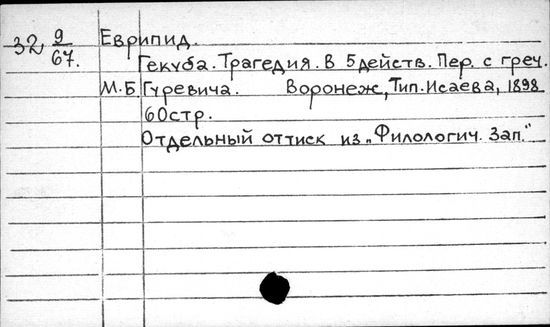 32 9/67. Еврипид.
Гекуба. Трагедия. В 5 действ. Пер. с греч.
М.Б. Гуревича. Воронеж, Тип. Исаева, 1898
60 стр.
Отдельный оттиск из „Филологич. Зап."